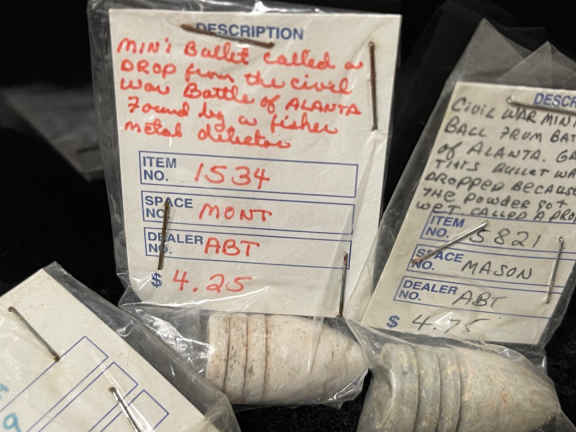 DESCRIPTION
MIN'i Ballet called a
DROP from the civel
war Battle of ALANTA
Found by a fisher
metal detector
ITEM
NO. 1534
SPACE
NO. MONT
DEALER
NO. ABT
$ 4.25
DESCR
CIVIL WAR MIN
BALL FROM BAT
of ALANTA. GA
THIS BULLET WA
DROPPED BECAUSE
THE POWDER GOT
WET CALLED A DRO
ITEM
NO. 5821
SPACE
NO. MASON
DEALER
NO. ABT
$ 4.75